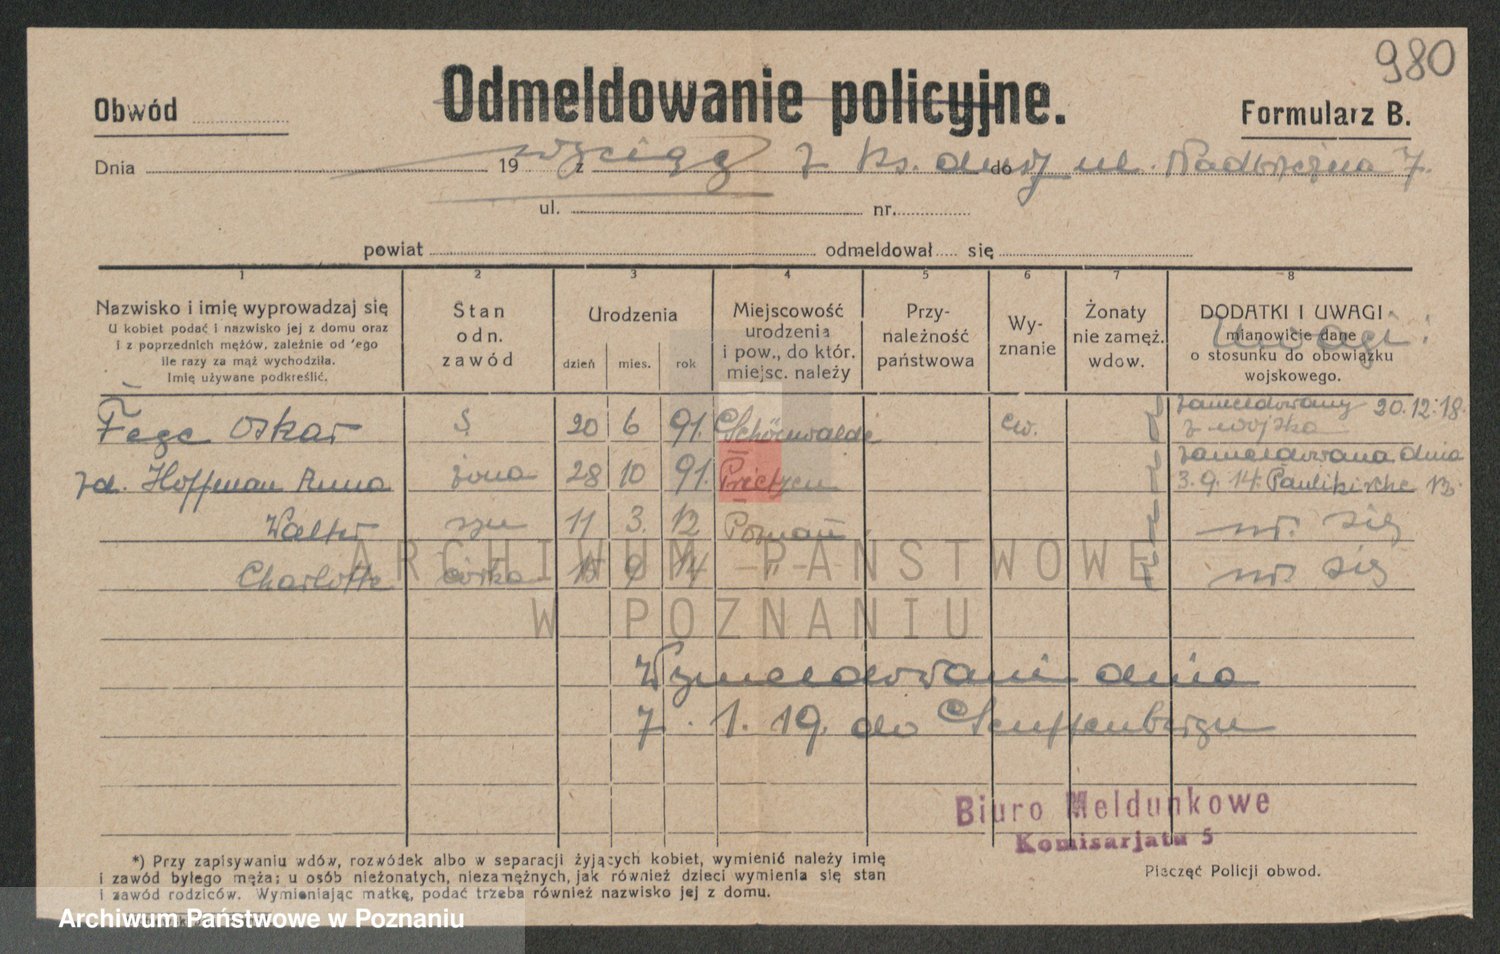 980
Odmeldowanie policyjne.
Obwód
Formularz B.
Dnia 19 z do
wyciąg z ks. dusz ul. Nadbrzeżna 7.
ul. nr.
powiat odmeldował się
1 2 3 4 5 6 7 8
Nazwisko i imię wyprowadzaj się
U kobiet podać i nazwisko jej z domu oraz
i z poprzednich mężów, zależnie od tego
ile razy za mąż wychodziła.
Imię używane podkreślić.
Stan
odn.
zawód
Urodzenia
dzień mies. rok
Miejscowość
urodzenia
i pow., do któr.
miejsc. należy
Przy-
należność
państwowa
Wy-
znanie
Żonaty
nie zamęż.
wdow.
DODATKI I UWAGI
mianowicie dane
o stosunku do obowiązku
wojskowego.
Uwagi:
Fege Oskar 20 6 91. Schönwalde ew. zameldowany 20.12.18.
z wojska
zd. Hoffman Anna żona 28 10 91. zameldowana dnia
3.9.14. Paulikirche 13.
Walter syn 11 3. 12 Poznań ur. się
Charlotte córka 15 9 14 -"- ur. się
Wymeldowani dnia
7. 1. 19. do Senftenbergu
Biuro Meldunkowe
Komisarjatu 5
*) Przy zapisywaniu wdów, rozwódek albo w separacji żyjących kobiet, wymienić należy imię
i zawód byłego męża; u osób nieżonatych, niezamężnych, jak również dzieci wymienia się stan
i zawód rodziców. Wymieniając matkę, podać trzeba również nazwisko jej z domu.
Pieczęć Policji obwod.
ARCHIWUM PAŃSTWOWE
W POZNANIU
Archiwum Państwowe w Poznaniu